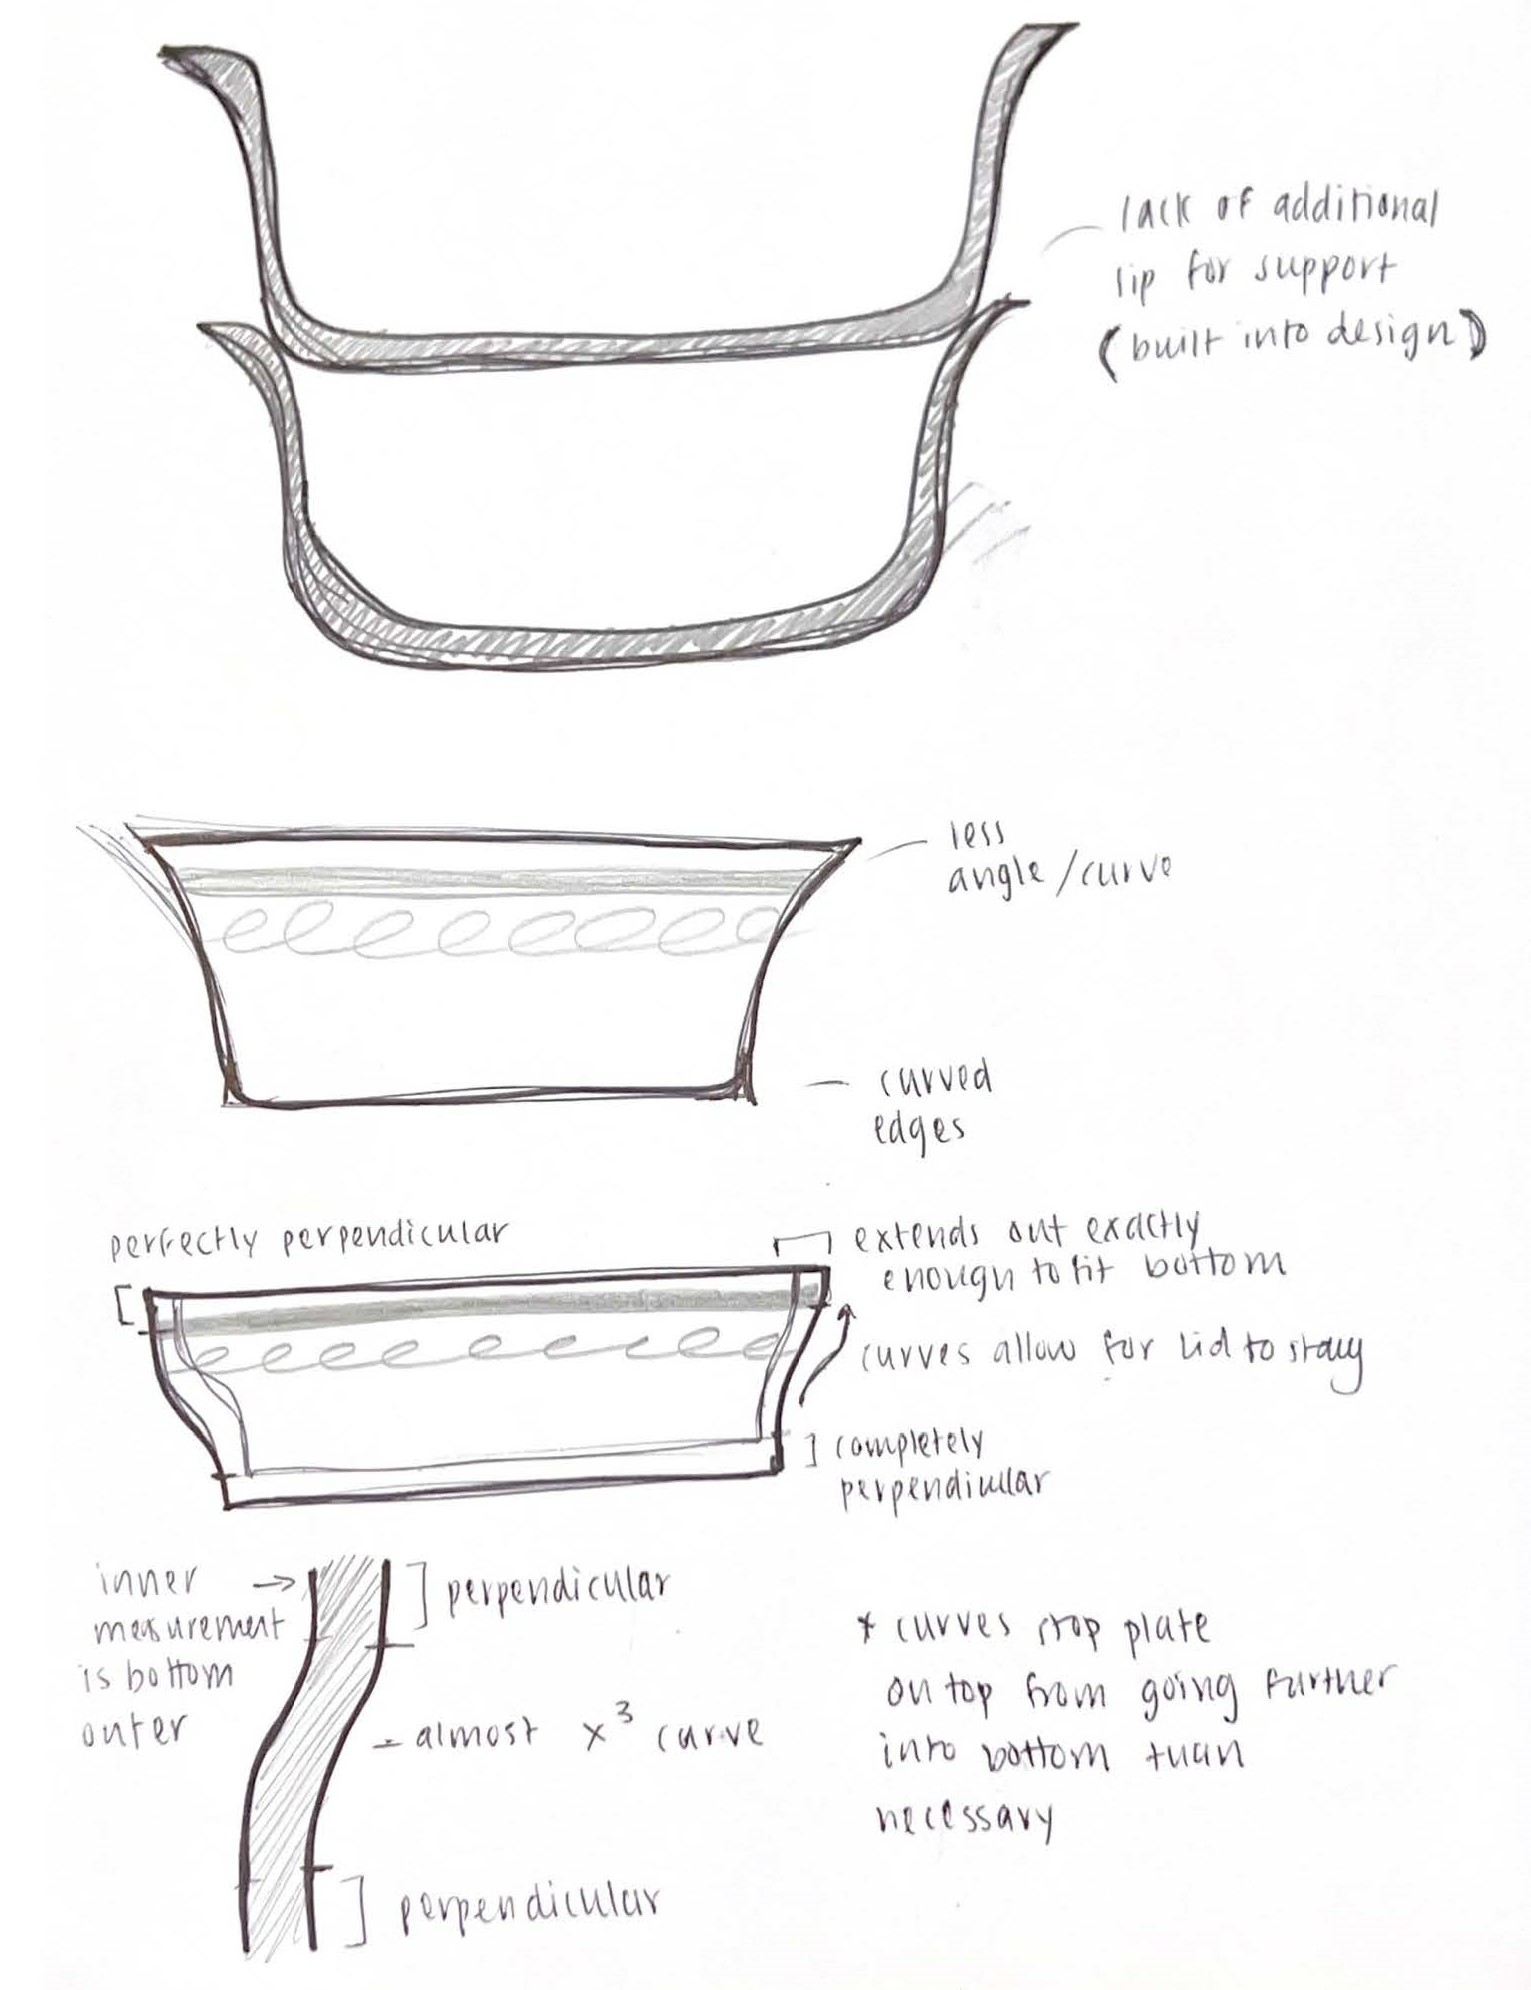 lack of additional
lip for support
(built into design)
less
angle/curve
curved
edges
perfectly perpendicular
extends out exactly
enough to fit bottom
curves allow for lid to stay
completely
perpendicular
inner
measurement
is bottom
outer
perpendicular
almost x³ curve
perpendicular
* curves stop plate
on top from going further
into bottom than
necessary